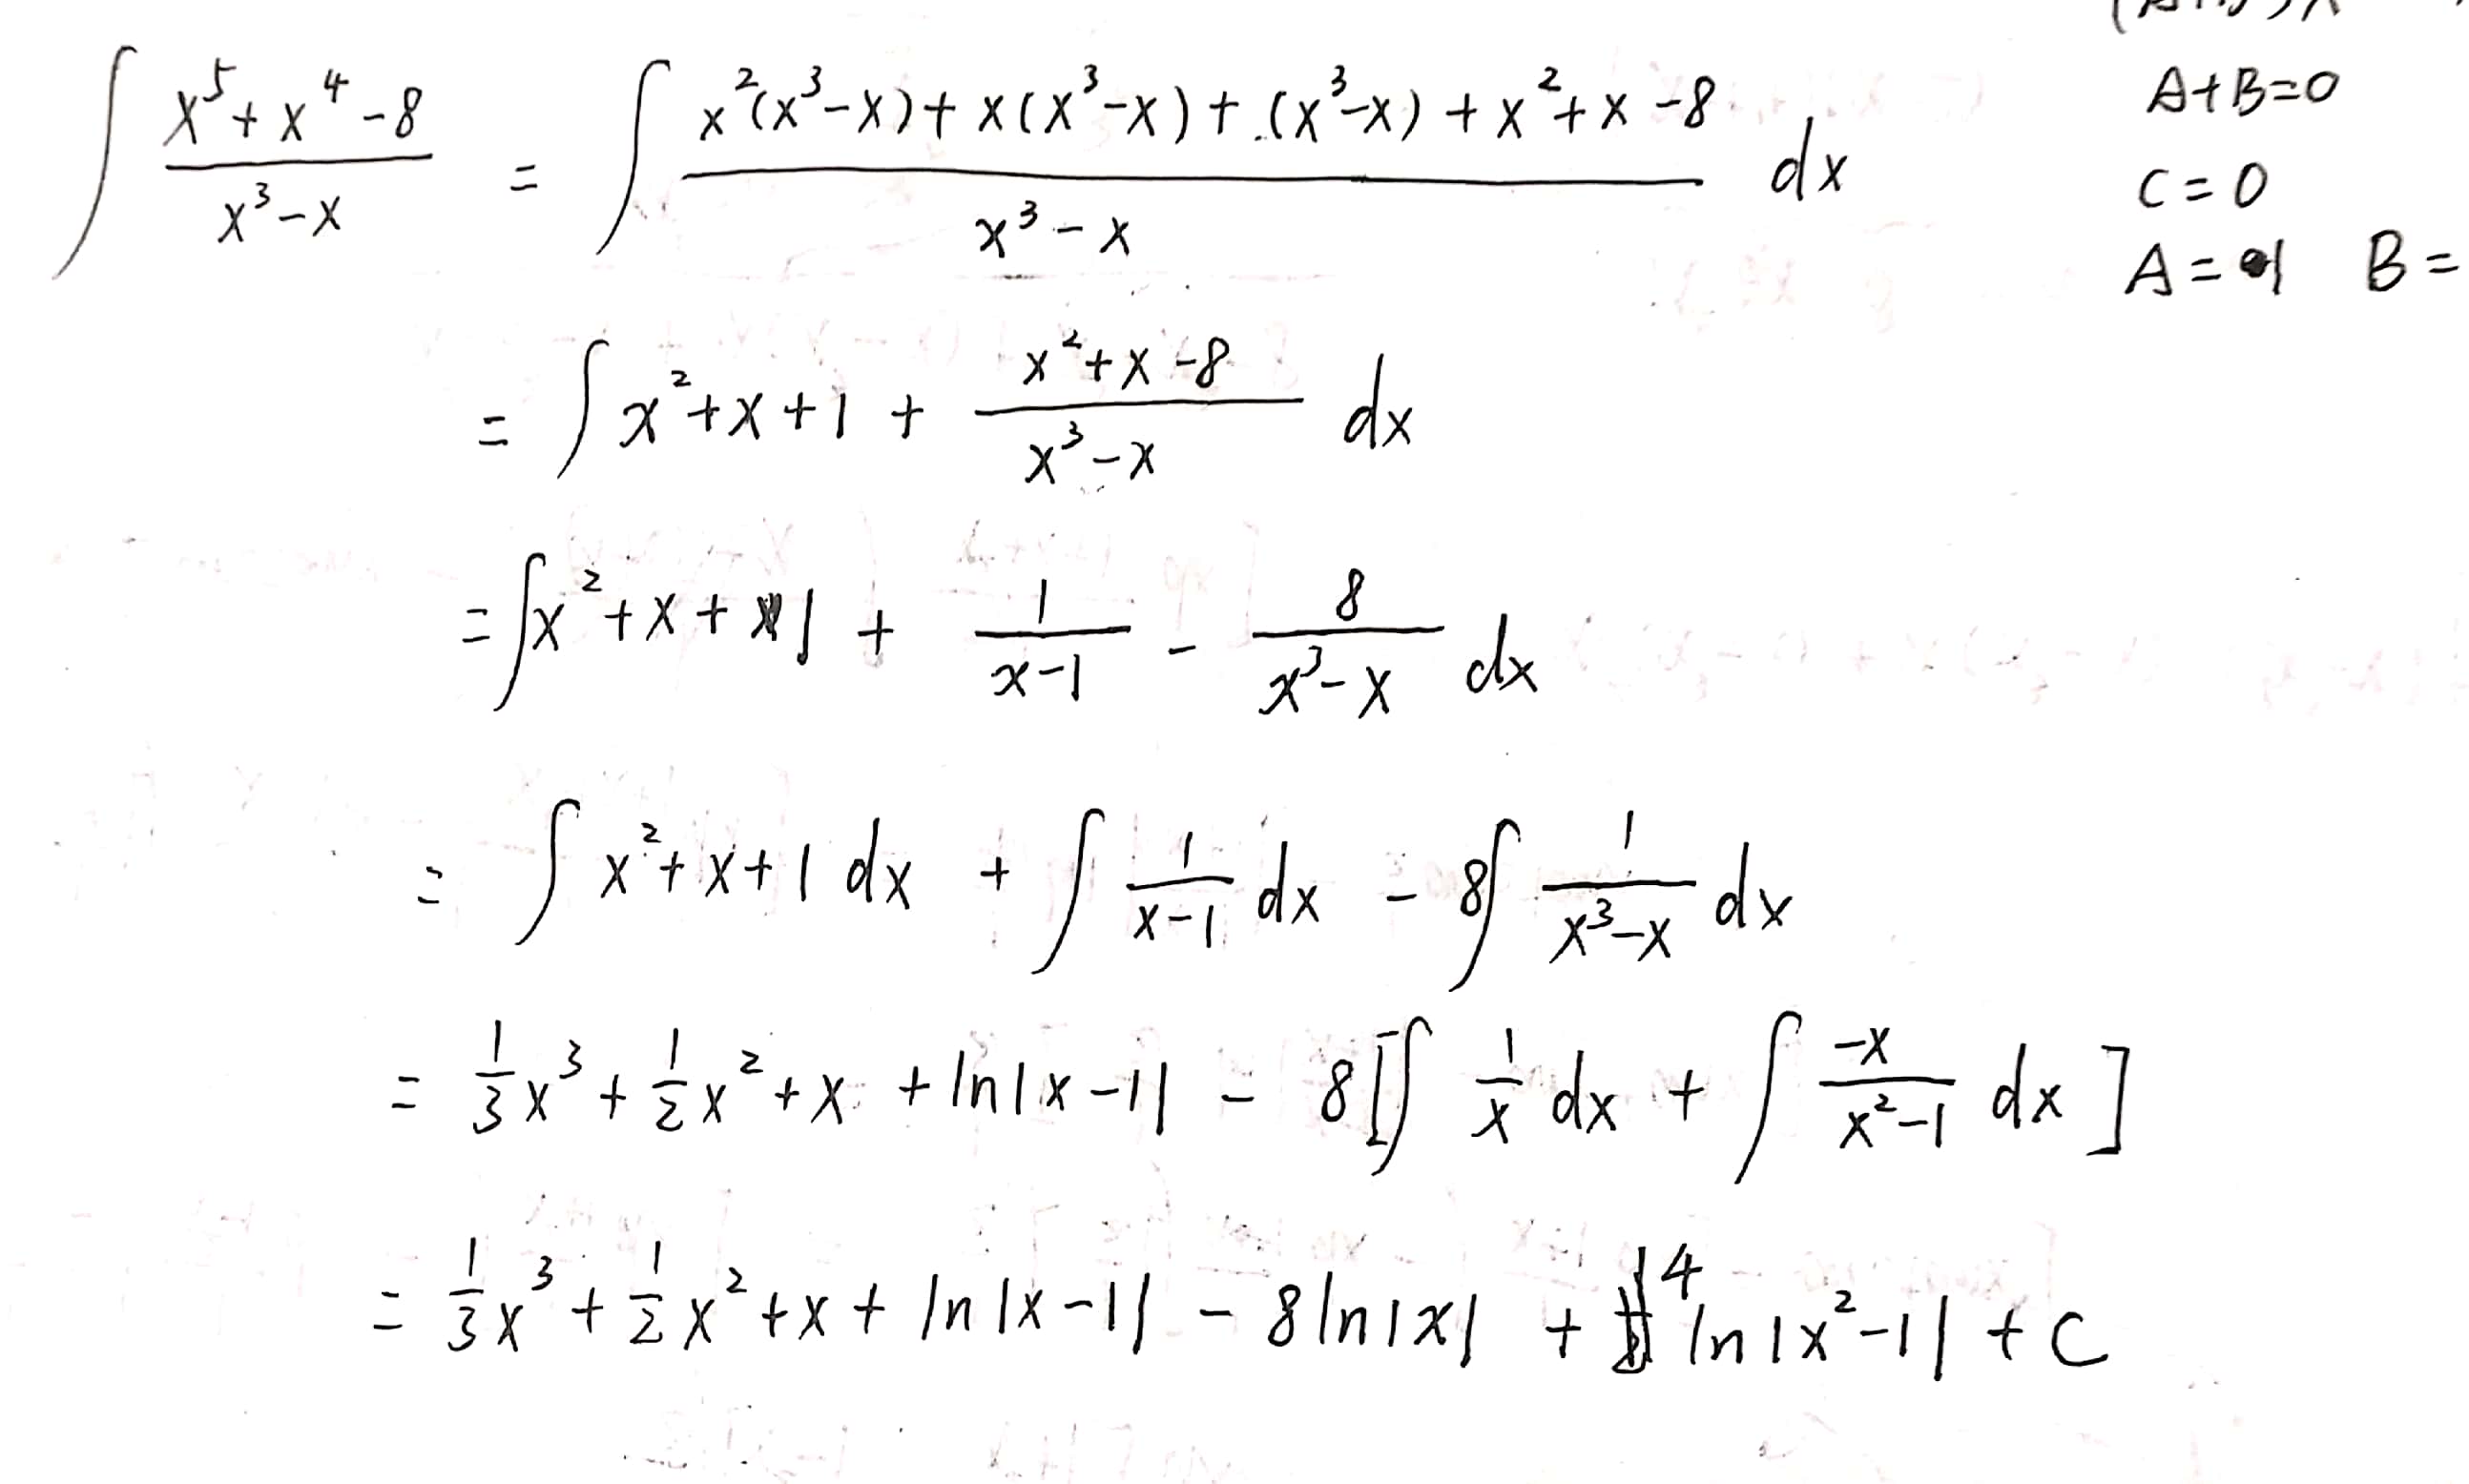 ∫ (x⁵+x⁴-8)/(x³-x) = ∫ (x²(x³-x)+x(x³-x)+(x³-x)+x²+x-8)/(x³-x) dx
= ∫ x²+x+1 + (x²+x-8)/(x³-x) dx
= ∫ x²+x+1 + 1/(x-1) - 8/(x³-x) dx
= ∫ x²+x+1 dx + ∫ 1/(x-1) dx - 8∫ 1/(x³-x) dx
= 1/3 x³ + 1/2 x² + x + ln|x-1| - 8[∫ 1/x dx + ∫ -x/(x²-1) dx]
= 1/3 x³ + 1/2 x² + x + ln|x-1| - 8ln|x| + 4 ln|x²-1| + C
A+B=0
C=0
A=1 B=